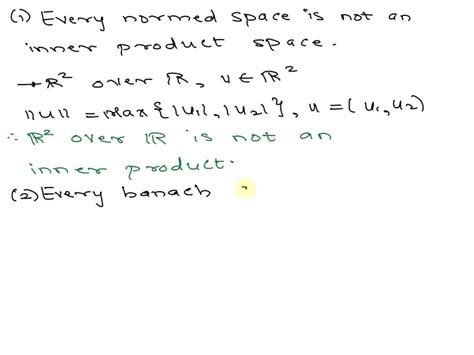 (1) Every normed space is not an
inner product space.
→ ℝ² over ℝ, u ∈ ℝ²
||u|| = Max{|u₁|, |u₂|}, u = (u₁, u₂)
∴ ℝ² over ℝ is not an
inner product.
(2) Every banach